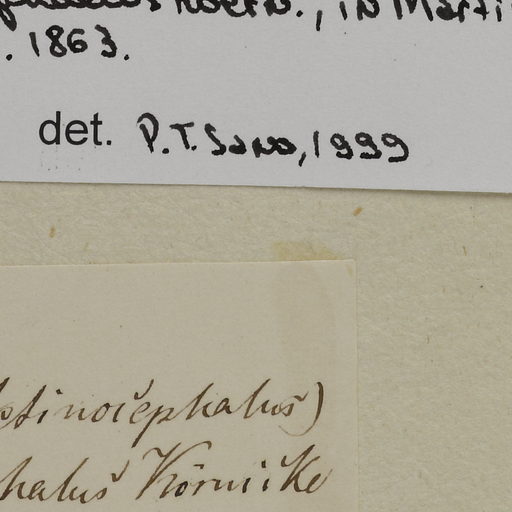 Koern., in Marti
. 1863.
det. P.T. Sano, 1999
ctinocephalus)
halus Körnicke